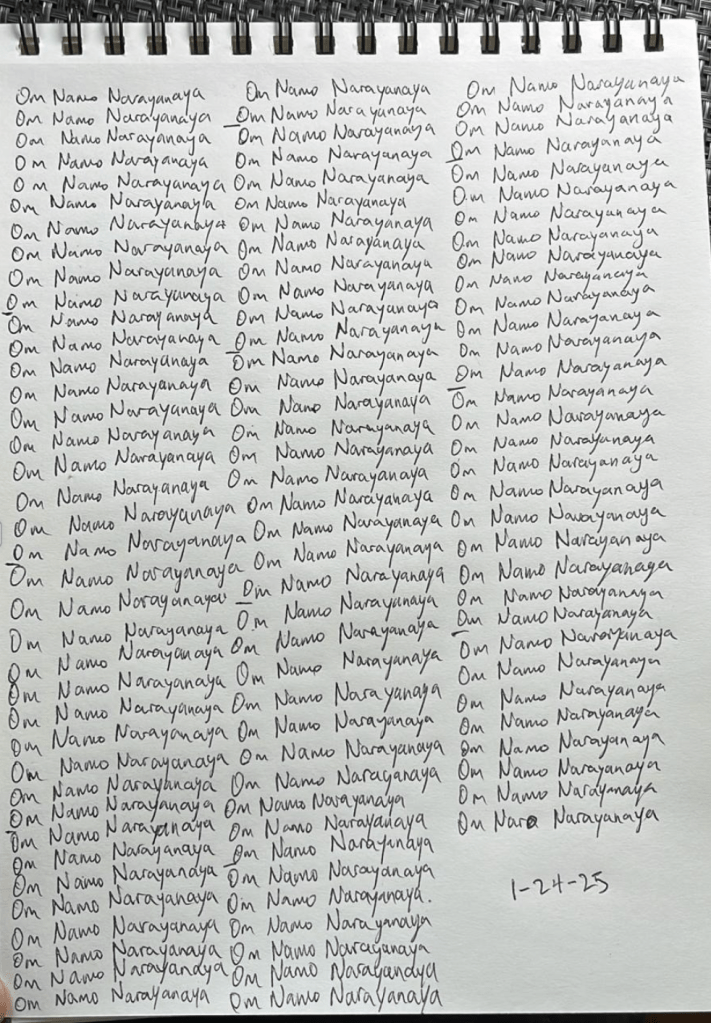 Om Namo Narayanaya
Om Namo Narayanaya
Om Namo Narayanaya
Om Namo Narayanaya
Om Namo Narayanaya
Om Namo Narayanaya
Om Namo Narayanaya
Om Namo Narayanaya
Om Namo Narayanaya
Om Namo Narayanaya
Om Namo Narayanaya
Om Namo Narayanaya
Om Namo Narayanaya
Om Namo Narayanaya
Om Namo Narayanaya
Om Namo Narayanaya
Om Namo Narayanaya
Om Namo Narayanaya
Om Namo Narayanaya
Om Namo Narayanaya
Om Namo Narayanaya
Om Namo Narayanaya
Om Namo Narayanaya
Om Namo Narayanaya
Om Namo Narayanaya
Om Namo Narayanaya
Om Namo Narayanaya
Om Namo Narayanaya
Om Namo Narayanaya
Om Namo Narayanaya
Om Namo Narayanaya
Om Namo Narayanaya
Om Namo Narayanaya
Om Namo Narayanaya
Om Namo Narayanaya
Om Namo Narayanaya
Om Namo Narayanaya
Om Namo Narayanaya
Om Namo Narayanaya
Om Namo Narayanaya
Om Namo Narayanaya
Om Namo Narayanaya
Om Namo Narayanaya
Om Namo Narayanaya
Om Namo Narayanaya
Om Namo Narayanaya
Om Namo Narayanaya
Om Namo Narayanaya
Om Namo Narayanaya
Om Namo Narayanaya
Om Namo Narayanaya
Om Namo Narayanaya
Om Namo Narayanaya
Om Namo Narayanaya
Om Namo Narayanaya
Om Namo Narayanaya
Om Namo Narayanaya
Om Namo Narayanaya
Om Namo Narayanaya
Om Namo Narayanaya
Om Namo Narayanaya
Om Namo Narayanaya
Om Namo Narayanaya
Om Namo Narayanaya
Om Namo Narayanaya
Om Namo Narayanaya
Om Namo Narayanaya
Om Namo Narayanaya
Om Namo Narayanaya
Om Namo Narayanaya
Om Namo Narayanaya
Om Namo Narayanaya.
Om Namo Narayanaya
Om Namo Narayanaya
Om Namo Narayanaya
Om Namo Narayanaya
Om Namo Narayanaya
Om Namo Narayanaya
Om Namo Narayanaya
Om Namo Narayanaya
Om Namo Narayanaya
Om Namo Narayanaya
Om Namo Narayanaya
Om Namo Narayanaya
Om Namo Narayanaya
Om Namo Narayanaya
Om Namo Narayanaya
Om Namo Narayanaya
Om Namo Narayanaya
Om Namo Narayanaya
Om Namo Narayanaya
Om Namo Narayanaya
Om Namo Narayanaya
Om Namo Narayanaya
Om Namo Narayanaya
Om Namo Narayanaya
Om Namo Narayanaya
Om Namo Narayanaya
Om Namo Narayanaya
Om Namo Narayanaya
Om Namo Narayanaya
Om Namo Narayanaya
Om Namo Narayanaya
Om Namo Narayanaya
Om Namo Narayanaya
Om Namo Narayanaya
Om Namo Narayanaya
Om Naro Narayanaya
1-24-25